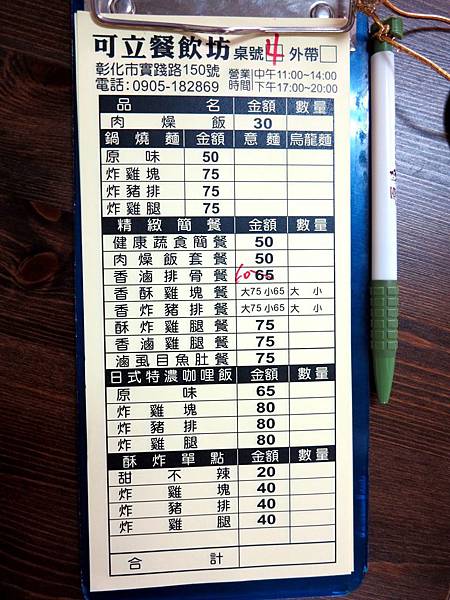 可立餐飲坊 桌號□ 4 外帶□
彰化市實踐路150號 營業 中午11:00~14:00
電話:0905-182869 時間 下午17:00~20:00
品 名 金額 數量
肉 燥 飯 30
鍋燒麵 金額 意麵 烏龍麵
原 味 50
炸雞塊 75
炸豬排 75
炸雞腿 75
精緻簡餐 金額 數量
健康蔬食簡餐 50
肉燥飯套餐 50
香滷排骨餐 60 65
香酥雞塊餐 大75 小65 大 小
香炸豬排餐 大75 小65 大 小
酥炸雞腿餐 75
香滷雞腿餐 75
滷虱目魚肚餐 75
日式特濃咖哩飯 金額 數量
原 味 65
炸雞塊 80
炸豬排 80
炸雞腿 80
酥炸單點 金額 數量
甜不辣 20
炸雞塊 40
炸豬排 40
炸雞腿 40
合 計